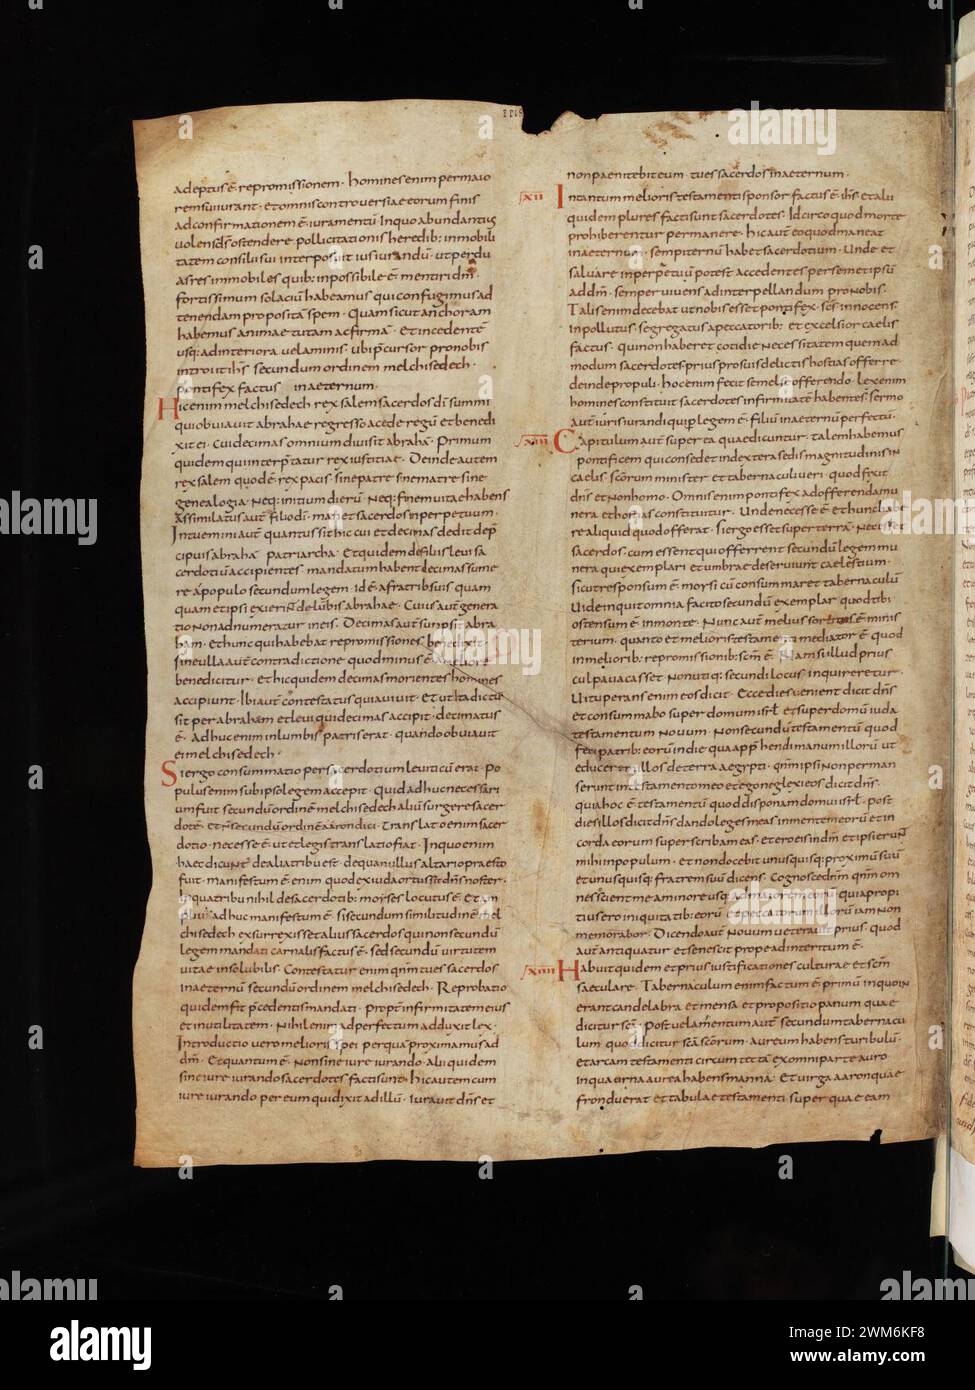 adeptus ẽ repromissionem· homines enim per maio
rem sui iurant· et omnis controversiae eorum finis
ad confirmationem ẽ iuramentũ In quo abundantius
volens dš ostendere pollicitationis heredib: inmobili
tatem consilii sui interposuit iusiurandũ· ut per du
as res immobiles quib: inpossibile ẽ mentiri dm̃·
fortissimum solaciũ habeamus qui confugimus ad
tenendam propositã spem· Quam sicut anchoram
habemus animae tutam ac firmã· Et incedentẽ
usq: ad interiora velaminis· ubi p̃cursor pro nobis
introiit ihs̃ secundum ordinem melchisedech·
pontifex factus in aeternum·
Hic enim melchisedech rex salem sacerdos dĩ summi
qui obviavit abrahae regresso a cede regũ et benedi
xit ei· Cui decimas omnium divisit abrahã· Primum
quidem qui interp̃tatur rex iustitiae· Deinde autem
rex salem quod ẽ· rex pacis sine patre sine matre sine
genealogia· Neq: initium dierũ Neq: finem vitae habens
Assimilatus aut̃ filio dĩ· manet sacerdos in perpetuum·
Intuemini aut̃ quantus sit hic cui et decimas dedit de p̃
cipuis abrahã patriarcha· Et quidem de filiis levi sa
cerdotiũ accipientes· mandatum habent decimas sume
re a populo secundum legem· id ẽ a fratribus suis quam
quam et ipsi exierint de lũbis abrahae· Cuius aut̃ genera
tio non adnumeratur in eis· Decimas aut̃ sumpsit̃ abra
ham· et hunc qui habebat repromissiones benedixit·
sine ulla aut̃ contradictione quod minus ẽ a meliore
benedicitur· Et hic quidem decimas morientes homines
accipiunt· Ibi aut̃ contestatus quia vivit· Et ut ita dictũ
sit per abraham et levi qui decimas accipit· decimatus
ẽ· Adhuc enim in lumbis patris erat· quando obviavit
ei melchisedech·
Si ergo consummatio per sacerdotium leviticũ erat· Po
pulus enim sub ipso legem accepit· Quid adhuc necessari
um fuit secundũ ordinẽ melchisedech aliũ surgere sacer
dotẽ· et ñ secundũ ordinẽ aaron dici· Translato enim sacer
dotio· necesse ẽ ut et legis translatio fiat· In quo enim
haec dicunt̃ de alia tribu est· de qua nullus altario praesto
fuit· manifestum ẽ enim quod ex iuda ortus sit dñs noster·
In qua tribu nihil de sacerdotib: moyses locutus ẽ· Et am
plius adhuc manifestum ẽ· si secundum similitudinẽ mel
chisedech exsurrexisset alius sacerdos qui non secundũ
legem mandati carnalis factus ẽ· sed secundũ virtutem
vitae insolubilis· Contestatur enim qñm tu es sacerdos
in aeternũ secundũ ordinem melchisedech· Reprobatio
quidem fit p̃cedentis mandati· Propt̃ infirmitatem eius
et inutilitatem· Nihil enim ad perfectum adduxit lex·
Introductio vero melioris spei per qua proximamus ad
dm̃· Et quantum ẽ· Non sine iure iurando· alii quidem
sine iure iurando sacerdotes facti sunt· hic autem cum
iure iurando per eum qui dixit ad illũ· iuravit dñs et
non paenitebit eum· tu es sacerdos in aeternum·
xii In tantum melioris testamenti sponsor factus ẽ ihs̃ et alii
quidem plures facti sunt sacerdotes· Idcirco quod morte
prohiberentur permanere· hic aut̃ eo quod maneat
in aeternum· sempiternũ habet sacerdotium· Unde et
salvare in perpetuũ potest accedentes per semetipsũ
ad dm̃· semper vivens ad interpellandum pro nobis·
Talis enim decebat ut nobis esset pontifex· sc̃s innocens·
inpollutus· segregatus a peccatorib: et excelsior caelis
factus· qui non haberet cotidie necessitatem quem ad
modum sacerdotes prius pro suis delictis hostias offerre·
deinde populi· hoc enim fecit semel se offerendo· Lex enim
homines constituit sacerdotes infirmitatẽ habentes· sermo
aut̃ iurisiurandi qui p̃ legem ẽ· filiũ in aeternũ perfectũ·
xiii Capitulum aut̃ super ea quae dicuntur· talem habemus
pontificem qui consedet in dextera sedis magnitudinis in
caelis· sc̃orum minister et tabernaculi veri· quod fixit
dñs et non homo· Omnis enim pontifex ad offerendam mu
nera et hostias constituitur· Unde necesse ẽ et hunc habe
re aliquid quod offerat· Si ergo esset super terrã· Nec esset
sacerdos· cum essent qui offerrent secundũ legem mu
nera qui exemplari et umbrae deserviunt caelestium·
sicut responsum ẽ moysi cũ consummaret tabernaculũ
Vide inquit omnia facito secundũ exemplar quod tibi
ostensum ẽ in monte· Nunc aut̃ melius sortitus ẽ minis
terium· quanto et melioris testamenti mediator ẽ quod
in meliorib: repromissionib: sc̃m ẽ· Nam si illud prius
culpa vacasset· Non utiq: secundi locus inquireretur·
Vituperans enim eos dicit· Ecce dies venient dicit dñs
et consummabo super domum isrl̃ et super domũ iuda
testamentum novum· Non secundũ testamentũ quod
feci patrib: eorũ in die qua app̃hendi manum illorũ ut
educerem illos de terra aegypti· qñm ipsi non perman
serint in testamento meo et ego neglexi eos dicit dñs·
quia hoc ẽ testamentũ quod disponam domui isrl̃· post
dies illos dicit dñs dando leges meas in mentem eorũ et in
corda eorum superscribam eas· et ero eis in dm̃ et ipsi erunt̃
mihi in populum· et non docebit unusquisq: proximũ suũ
et unusquisq: fratrem suũ dicens· Cognosce dñm· qñm om
nes scient me a minore usq: ad maiorẽ eorũ quia propi
tius ero iniquitatib: eorũ et peccatorum illorũ iam non
memorabor· Dicendo aut̃ novum veteravit prius· quod
aut̃ antiquatur et senescit prope ad interitum ẽ·
xiiii Habuit quidem et prius iustificationes culturae et sc̃m
saeculare· Tabernaculum enim factum ẽ primũ in quo in
erant candelabra et mensa et propositio panum quae
dicitur sc̃a· Post velamentum aut̃ secundum tabernacu
lum quod dicitur sc̃a sc̃orum· aureum habens turibulũ·
et arcam testamenti circumtectã ex omni parte auro
in qua urna aurea habens manna· Et virga aaron quae
fronduerat et tabulae testamenti super quae eam